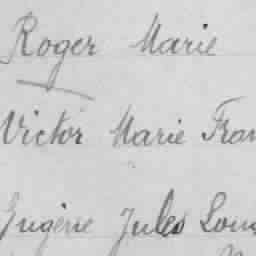 Roger Marie
Victor Marie Fran
Eugène Jules Loui